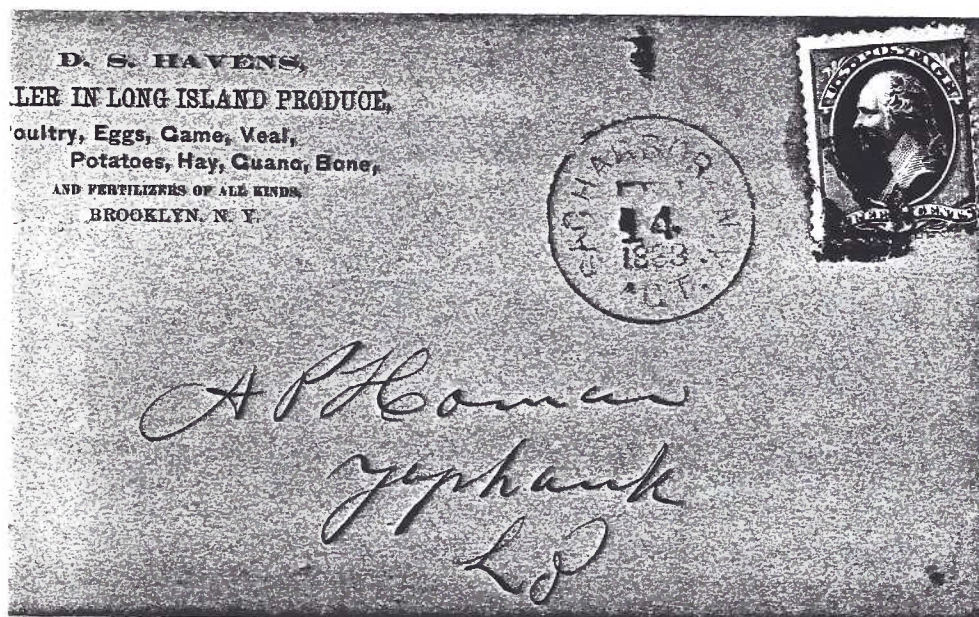 D. S. HAVENS,
LER IN LONG ISLAND PRODUCE,
oultry, Eggs, Game, Veal,
Potatoes, Hay, Guano, Bone,
AND FERTILIZERS OF ALL KINDS,
BROOKLYN, N. Y.
U.S. POSTAGE
CENTS
HARBOR N.Y.
14
1883
A P Homan
Yaphank
L I